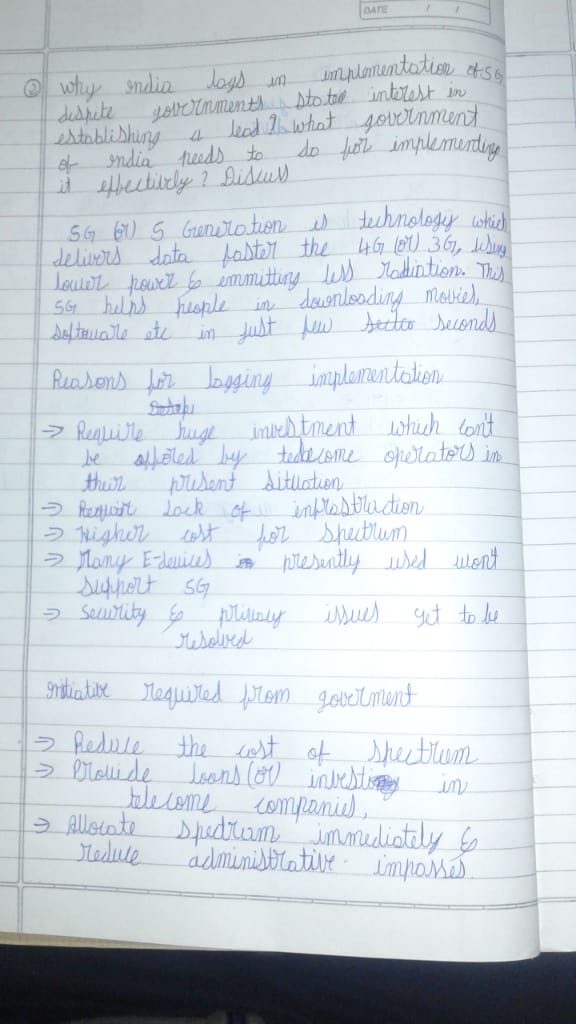 DATE / /
② Why india lags in implementation of 5G
despite governments stated interest in
establishing a lead? what government
of india needs to do for implementing
it effectively? Discuss
5G (or) 5 Generation is technology which
delivers data faster the 4G (or) 3G, using
lower power & emmitting less Radiation. This
5G helps people in downloading movies,
software etc in just few seconds
Reasons for lagging implementation
⇒ Require huge investment which can't
be affored by telecome operators in
their present situation
⇒ Lack of infrastruction
⇒ Higher cost for spectrum
⇒ Many E-devices presently used won't
support 5G
⇒ Security & privacy issues yet to be
resolved
initiative required from goverment
⇒ Reduce the cost of spectrum
⇒ Provide loans (or) invest in
telecome companies,
⇒ Allocate spectrum immediately &
reduce administrative impasses